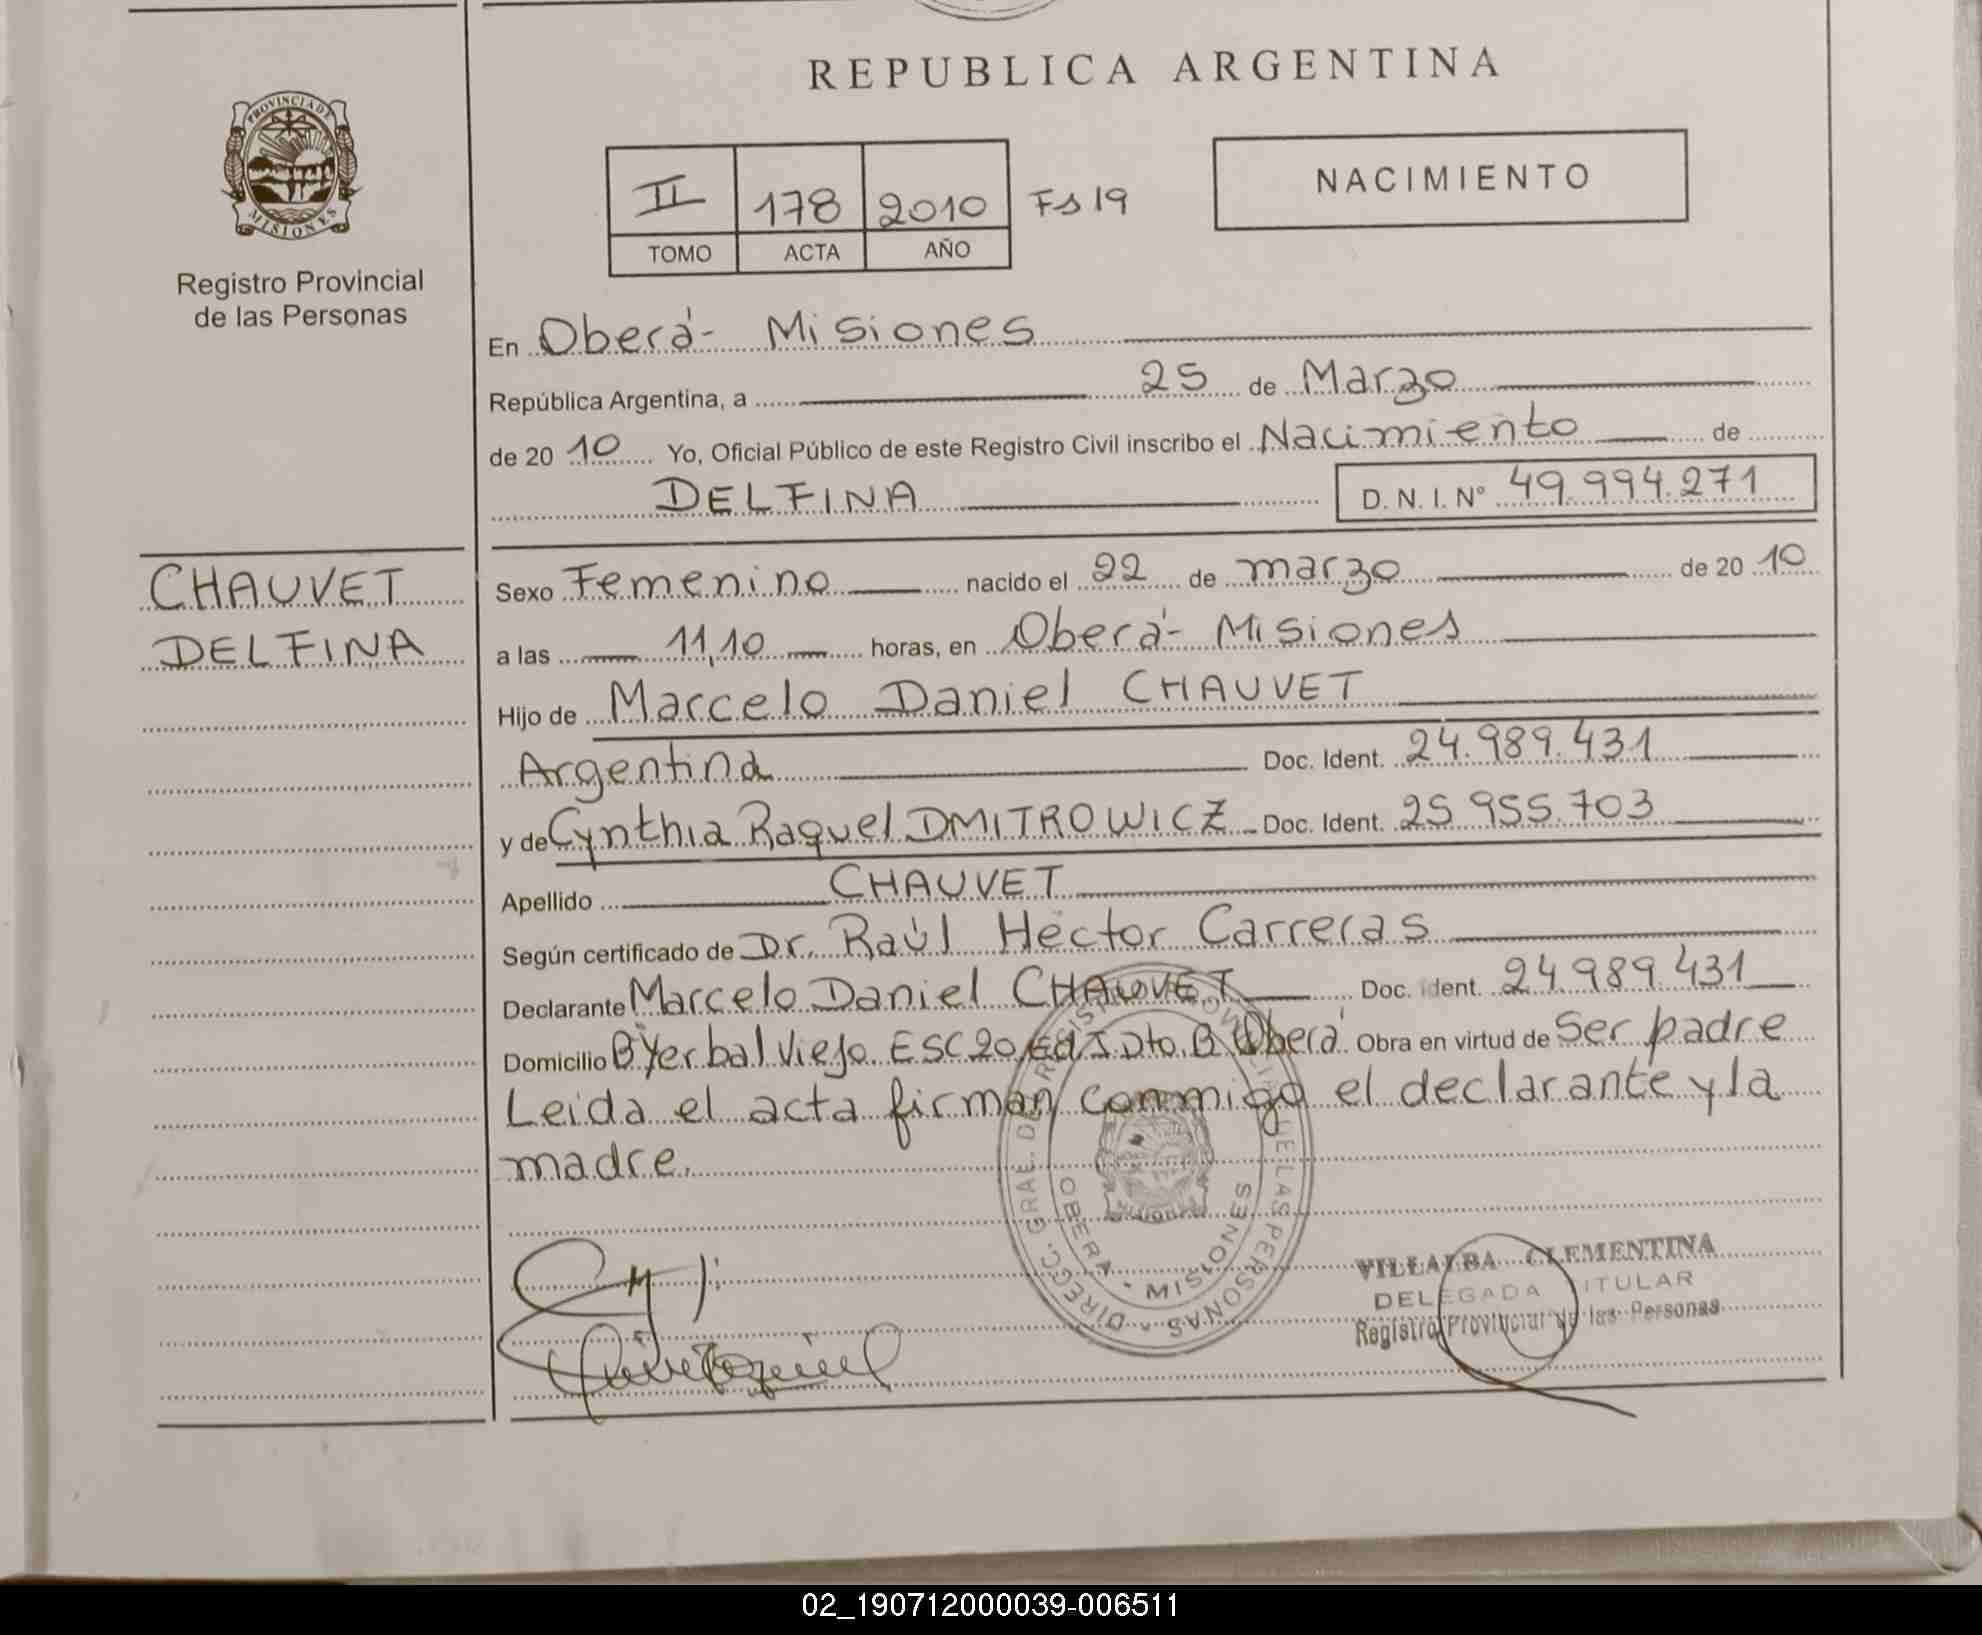 REPUBLICA ARGENTINA
PROVINCIA DE
MISIONES
Registro Provincial
de las Personas
II 178 2010 Fs 19
TOMO ACTA AÑO
NACIMIENTO
En Oberá - Misiones
República Argentina, a 25 de Marzo
de 20 10 Yo, Oficial Público de este Registro Civil inscribo el Nacimiento de
DELFINA D. N. I. N° 49.994.271
CHAUVET
DELFINA
Sexo Femenino nacido el 22 de marzo de 20 10
a las 11,10 horas, en Oberá - Misiones
Hijo de Marcelo Daniel CHAUVET
Argentina Doc. Ident. 24.989.431
y de Cynthia Raquel DMITROWICZ Doc. Ident. 25.955.703
Apellido CHAUVET
Según certificado de Dr. Raúl Héctor Carreras
Declarante Marcelo Daniel CHAUVET Doc. Ident. 24.989.431
Domicilio B° Yerbal Viejo ESC 20 Ed I Dto. B Oberá Obra en virtud de Ser padre
Leida el acta firman conmigo el declarante y la
madre.
DIRECC. GRAL. DE REGISTRO DE LAS PERSONAS
OBERA - MISIONES
VILLALBA CLEMENTINA
DELEGADA TITULAR
Registro Provincial de las Personas
02_190712000039-006511